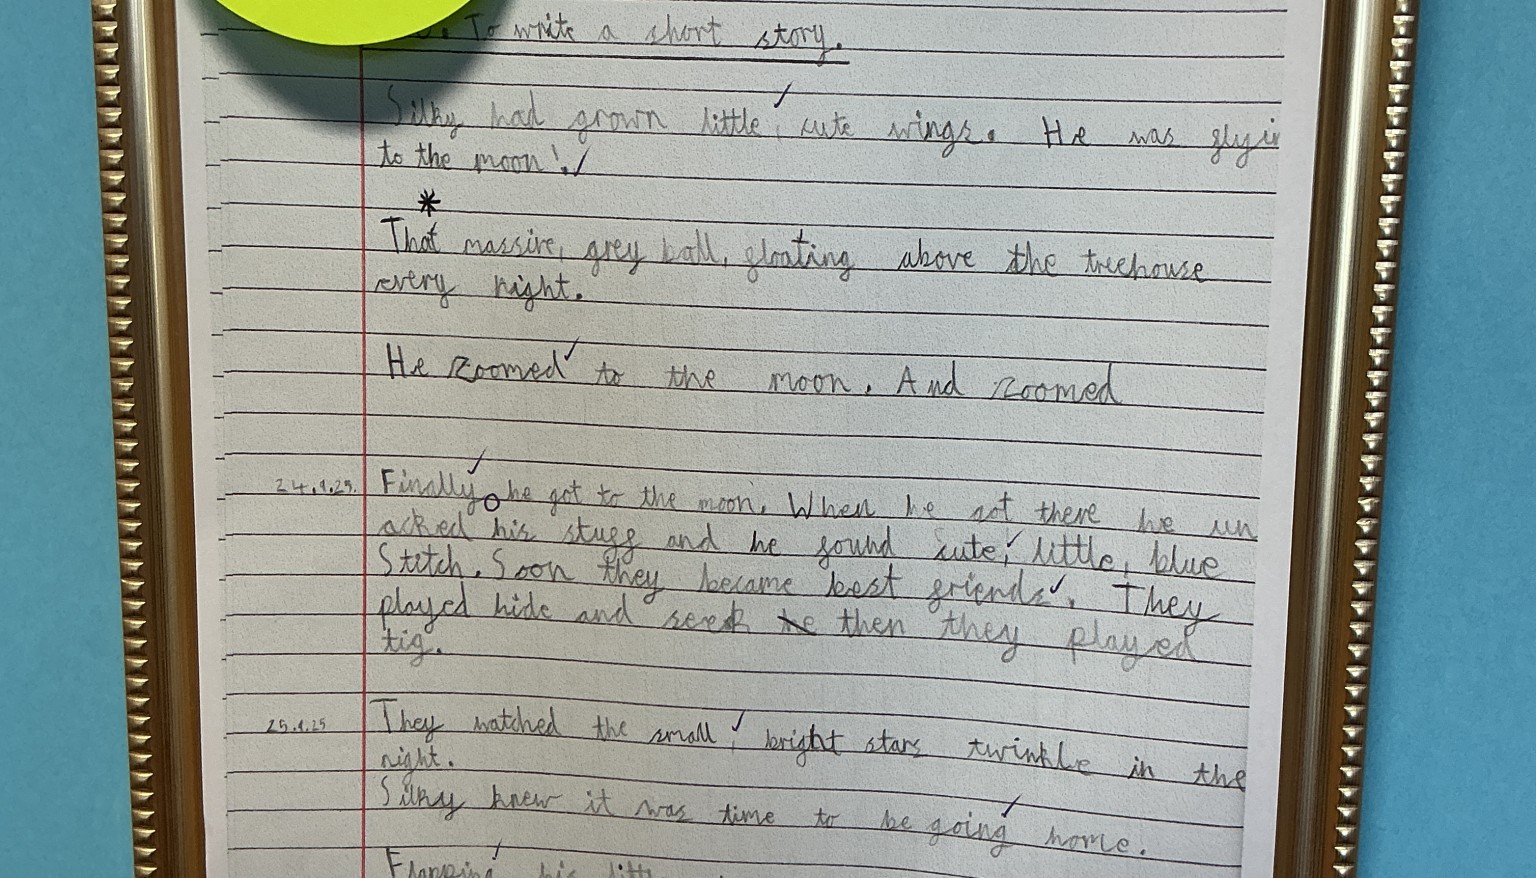 To write a short story.
Silky had grown little, cute wings. He was flyi
to the moon!
*
That massive, grey ball, floating above the treehouse
every night.
He zoomed to the moon. And zoomed
24.9.25. Finally he got to the moon. When he got there he un
acked his stuff and he found cute, little, blue
Stitch. Soon they became best friends. They
played hide and seek then they played
tig.
25.9.25 They watched the small, bright stars twinkle in the
night.
Silky knew it was time to be going home.
Flapping his littl